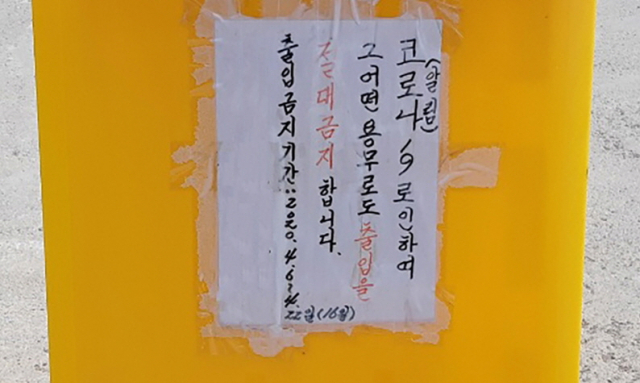 (알림)
코로나19로인하여
그어떤용무로도출입을
절대금지합니다.
출입금지기간:2020.4.6~4.
22일(16일)